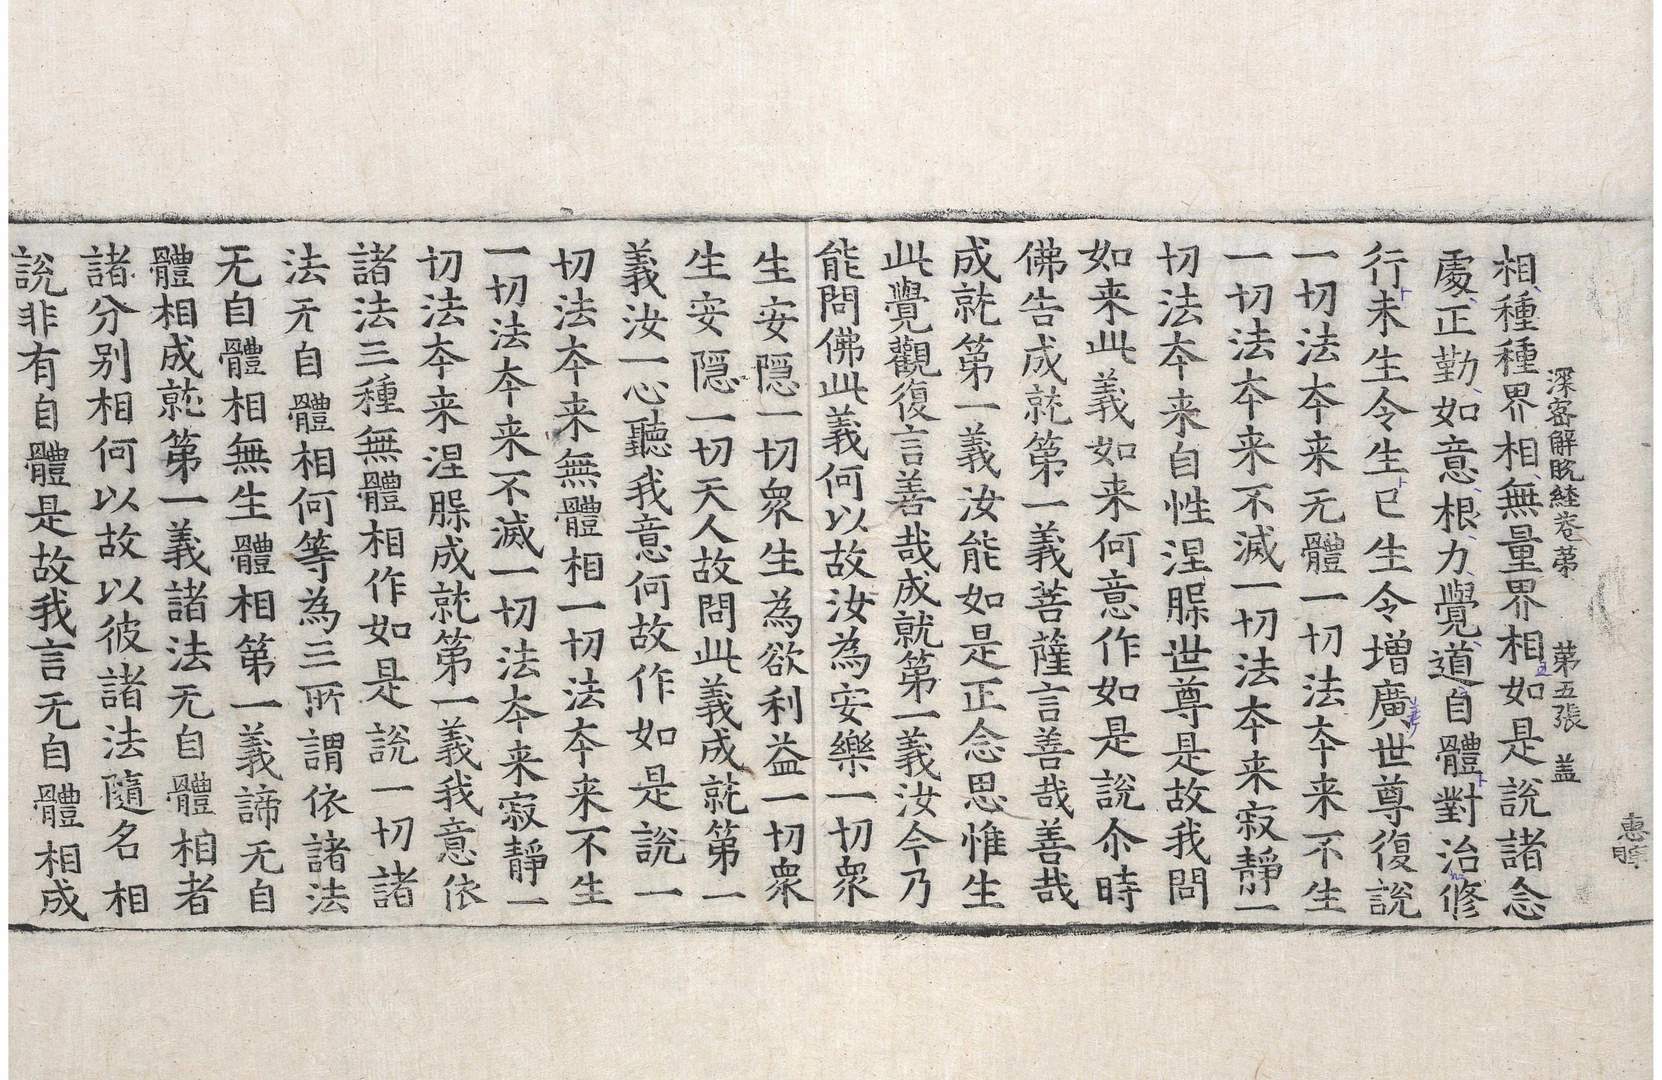 惠暉
深密解脫經卷第　第五張　盖
相種種界相無量界相如是說諸念
處正勤如意根力覺道自體對治修
行未生令生已生令增廣世尊復說
一切法夲来无體一切法夲来不生
一切法夲来不滅一切法夲来寂靜一
切法夲来自性涅槃世尊是故我問
如来此義如来何意作如是說尒時
佛告成就第一義菩薩言善哉善哉
成就第一義汝能如是正念思惟生
此覺觀復言善哉成就第一義汝今乃
能問佛此義何以故汝為安樂一切衆
生安隱一切衆生為欲利益一切衆
生安隱一切天人故問此義成就第一
義汝一心聽我意何故作如是說一
切法夲来無體相一切法夲来不生
一切法夲来不滅一切法夲来寂靜一
切法夲来涅槃成就第一義我意依
諸法三種無體相作如是說一切諸
法无自體相何等為三所謂依諸法
无自體相無生體相第一義諦无自
體相成就第一義諸法无自體相者
諸分别相何以故以彼諸法隨名相
說非有自體是故我言无自體相成